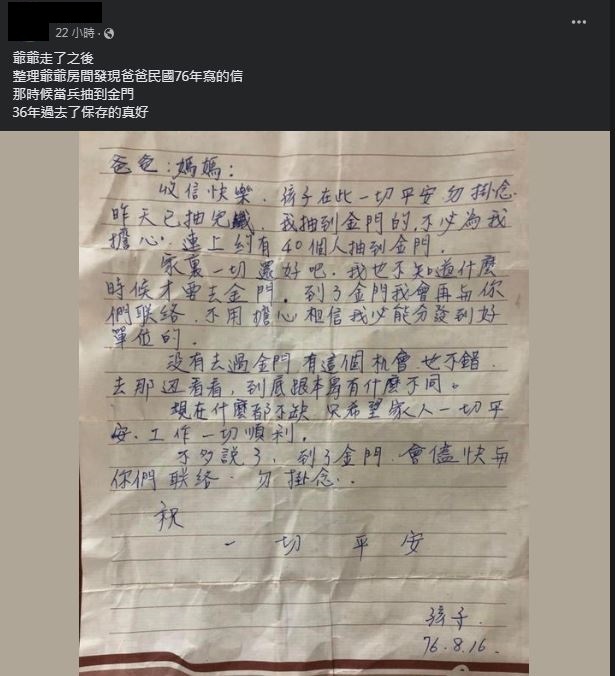 22 小時 ·
爺爺走了之後
整理爺爺房間發現爸爸民國76年寫的信
那時候當兵抽到金門
36年過去了保存的真好
爸爸:媽媽:
收信快樂.孩子在此一切平安勿掛念
昨天已抽完籤,我抽到金門的,不必為我
擔心.連上約有40個人抽到金門.
家裏一切還好吧.我也不知道什麼
時候才要去金門.到了金門我會再与你
們联絡.不用擔心相信我必能分發到好
單位的.
沒有去過金門有這個机會也不錯.
去那边看看,到底跟本島有什麼不同。
現在什麼都不缺 只希望家人一切平
安.工作一切順利.
不多說了.到了金門.會儘快与
你們联絡.勿掛念..
祝
一切平安
孩子.
76.8.16.